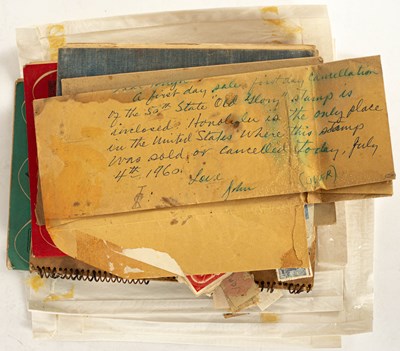 A first day sale, first day cancellation
of the 50th State "Old Glory" stamp is
enclosed. Honolulu is the only place
in the United States where this stamp
was sold or cancelled today, July
4th 1960.
Love
John
(OVER)